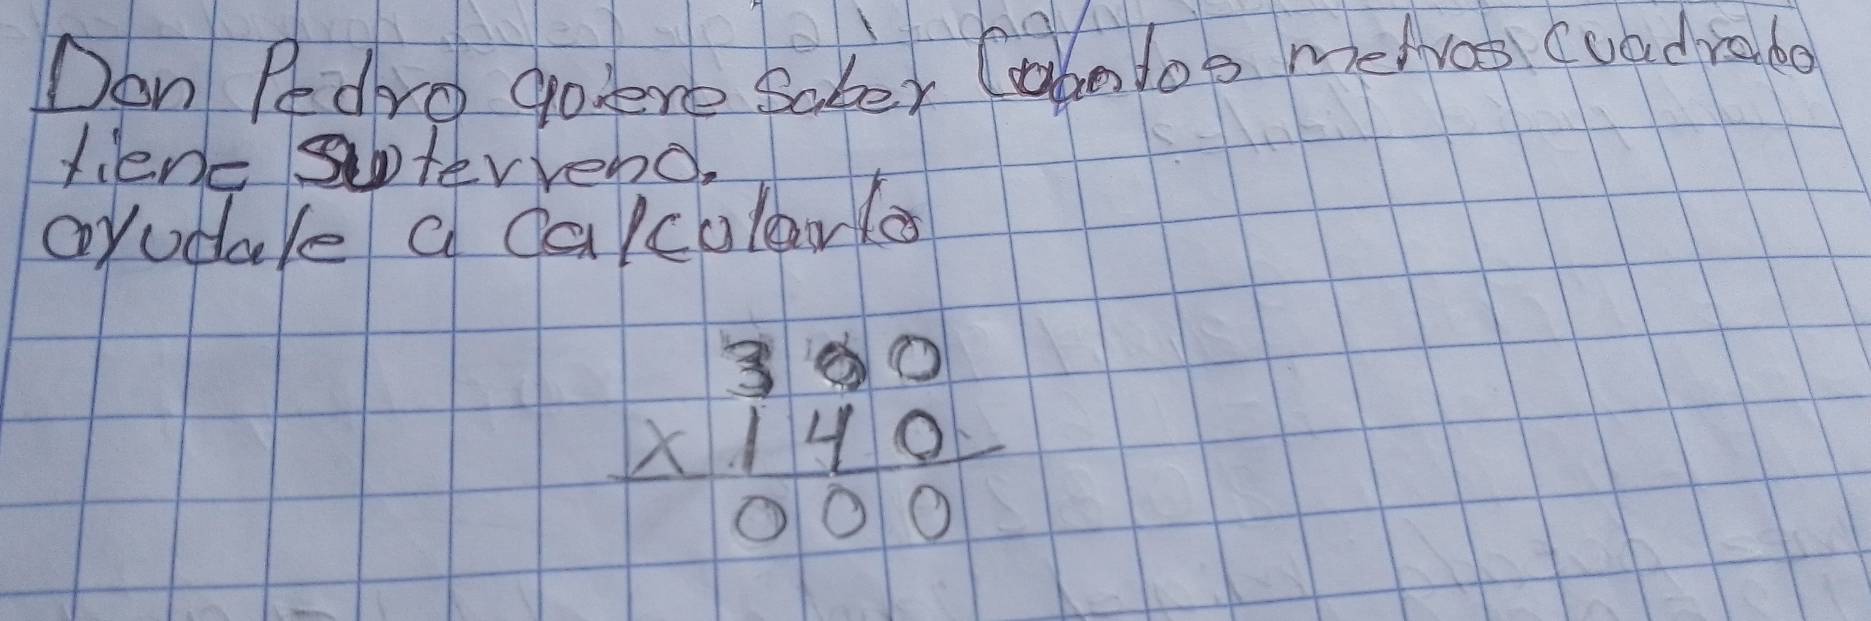 Don Pedro qoiere saber Coantos metros Cuadrado
tiene su terreno.
ayudale a Calcolarlo
300
x 140
000